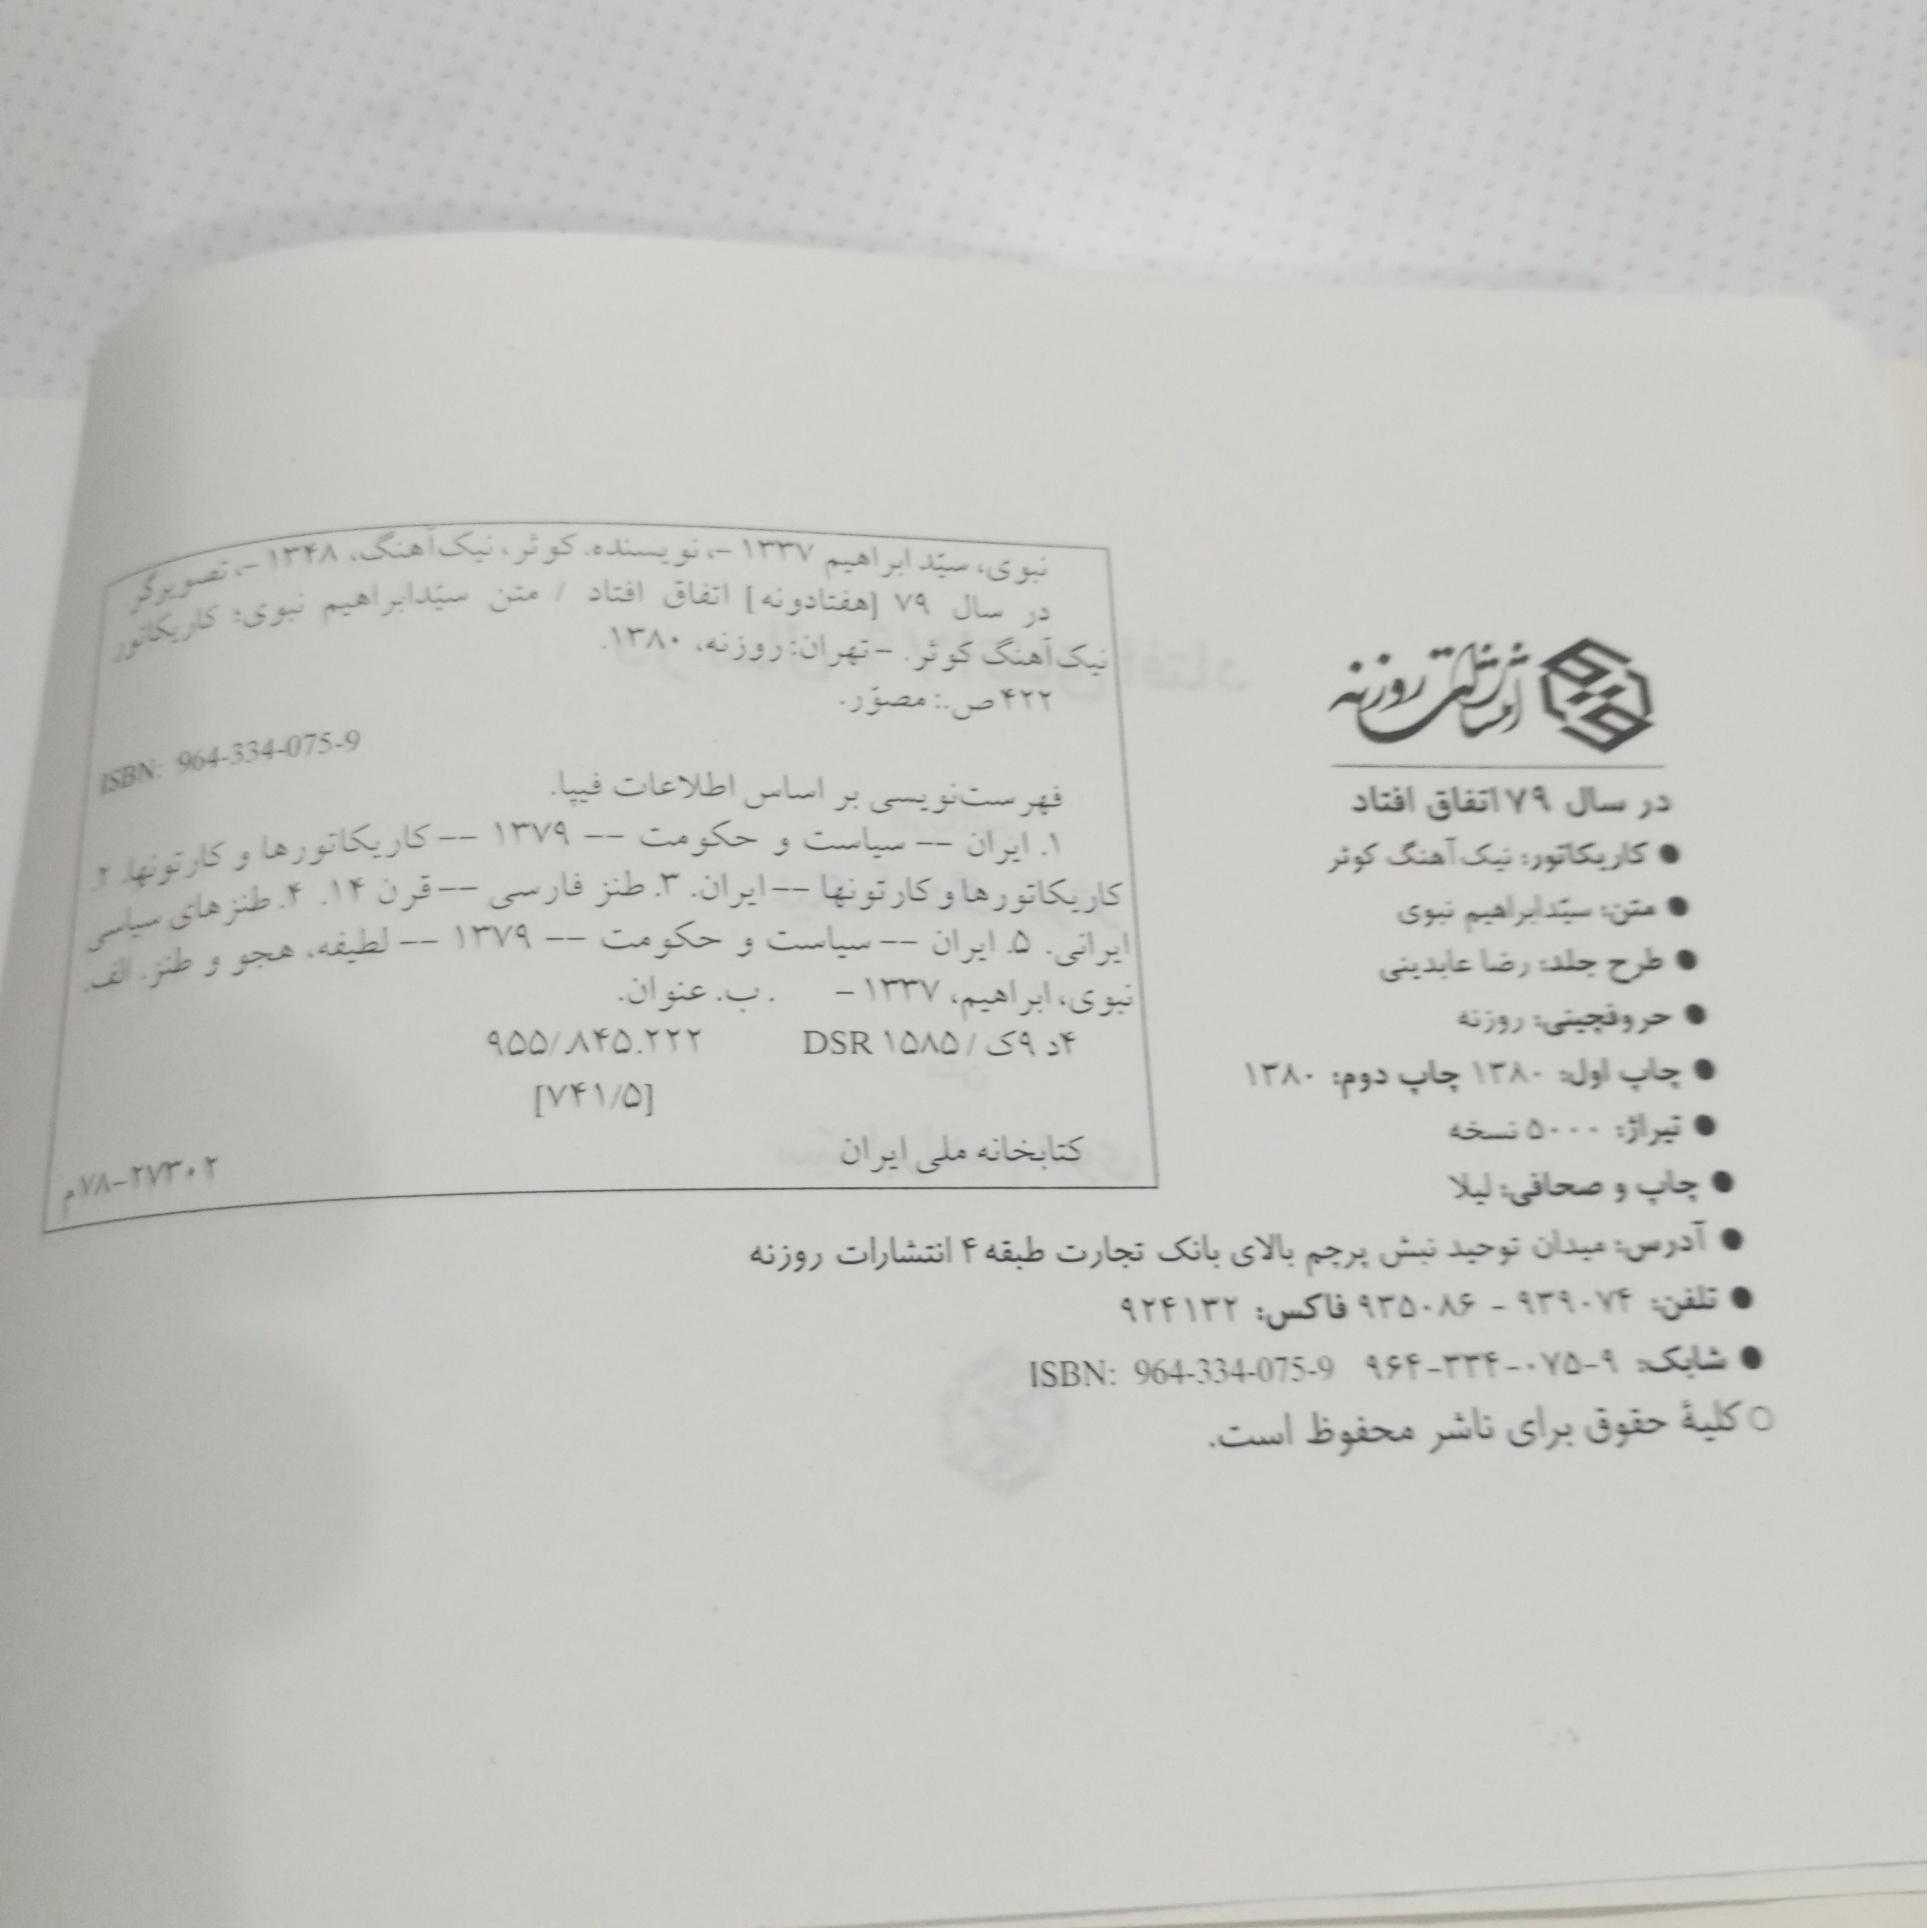 انتشارات روزنه
در سال ۷۹ اتفاق افتاد
● کاریکاتور: نیک‌آهنگ کوثر
● متن: سیّدابراهیم نبوی
● طرح جلد: رضا عابدینی
● حروفچینی: روزنه
● چاپ اول: ۱۳۸۰ چاپ دوم: ۱۳۸۰
● تیراژ: ۵۰۰۰ نسخه
● چاپ و صحافی: لیلا
● آدرس: میدان توحید نبش پرچم بالای بانک تجارت طبقه ۴ انتشارات روزنه
● تلفن: ۹۳۹۰۷۴ - ۹۳۵۰۸۶ فاکس: ۹۲۴۱۳۲
● شابک: ۹-۰۷۵-۳۳۴-۹۶۴ ISBN: 964-334-075-9
○ کلیهٔ حقوق برای ناشر محفوظ است.
نبوی، سیّد ابراهیم ۱۳۳۷ -، نویسنده. کوثر، نیک‌آهنگ، ۱۳۴۸ -، تصویرگر
در سال ۷۹ [هفتادونه] اتفاق افتاد / متن سیّدابراهیم نبوی؛ کاریکاتور
نیک‌آهنگ کوثر. - تهران: روزنه، ۱۳۸۰.
۴۲۲ ص.: مصوّر.
ISBN: 964-334-075-9
فهرست‌نویسی بر اساس اطلاعات فیپا.
۱. ایران -- سیاست و حکومت -- ۱۳۷۹ -- کاریکاتورها و کارتونها. ۲.
کاریکاتورها و کارتونها -- ایران. ۳. طنز فارسی -- قرن ۱۴. ۴. طنزهای سیاسی
ایرانی. ۵. ایران -- سیاست و حکومت -- ۱۳۷۹ -- لطیفه، هجو و طنز. الف.
نبوی، ابراهیم، ۱۳۳۷ - . ب. عنوان.
۴د ۹ک / ۱۵۸۵ DSR ۹۵۵/۰۸۴۵۰۲۲۲
[۷۴۱/۵]
کتابخانه ملی ایران
۷۸-۲۷۳۰۲م